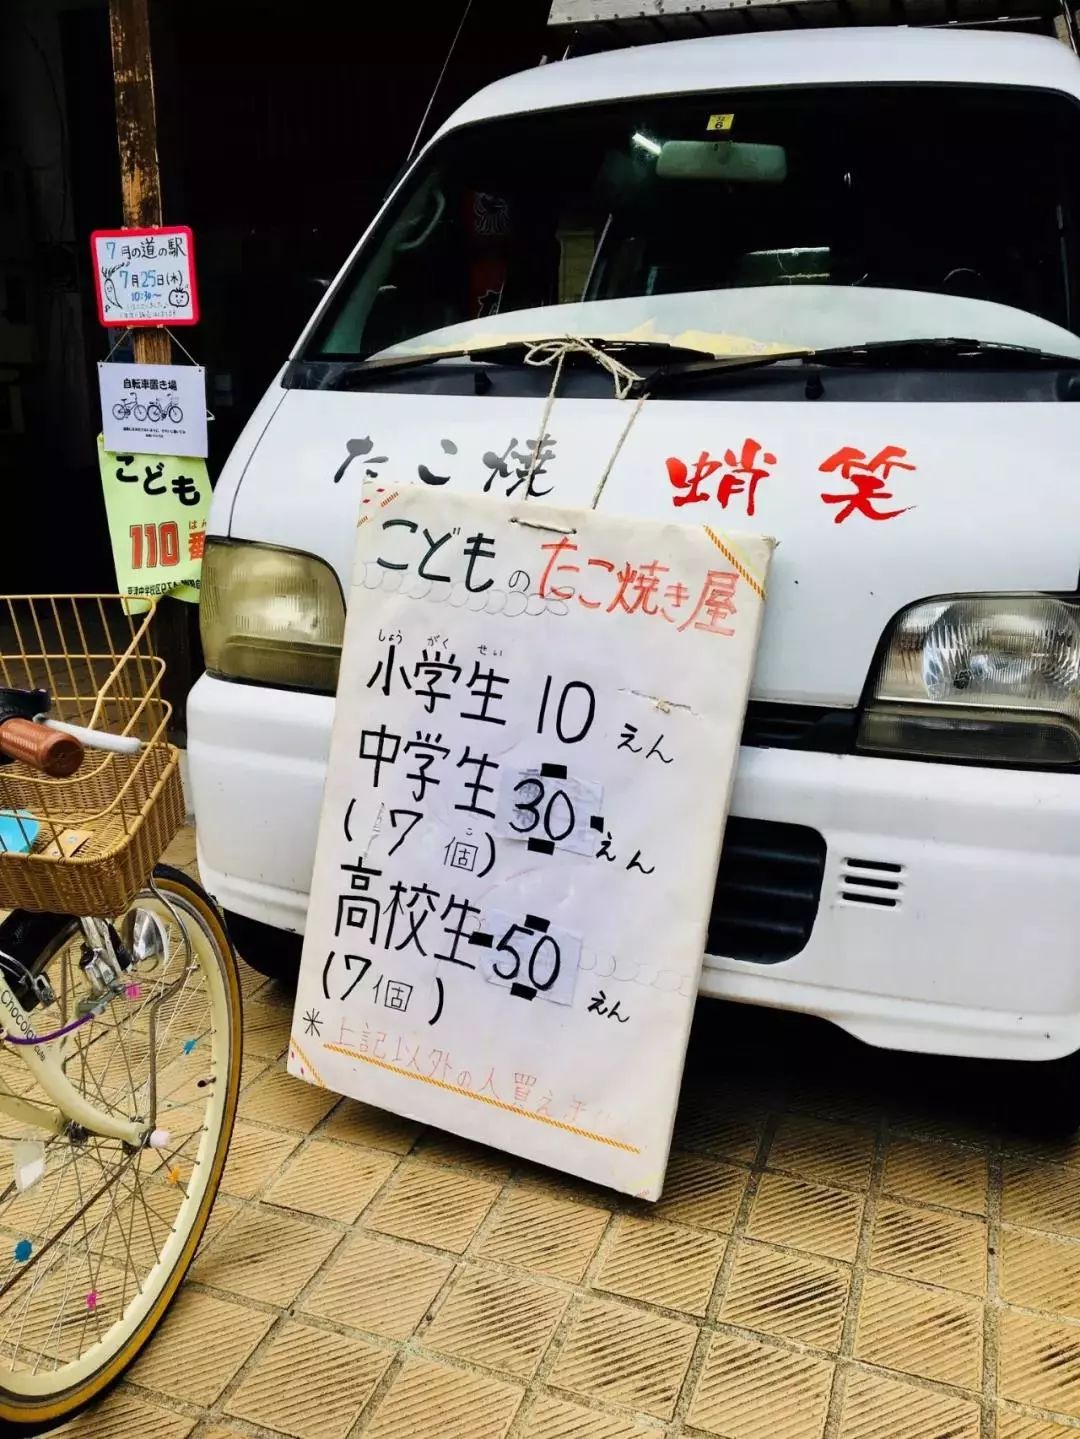 7月の道の駅
7月25日(水)
10:30〜
自転車置き場
こども
110番
はん
たこ焼 蛸笑
こどものたこ焼き屋
しょう がく せい
小学生 10 えん
中学生 30 えん
(7個)
高校生 50 えん
(7個)
※上記以外の人買えま
6